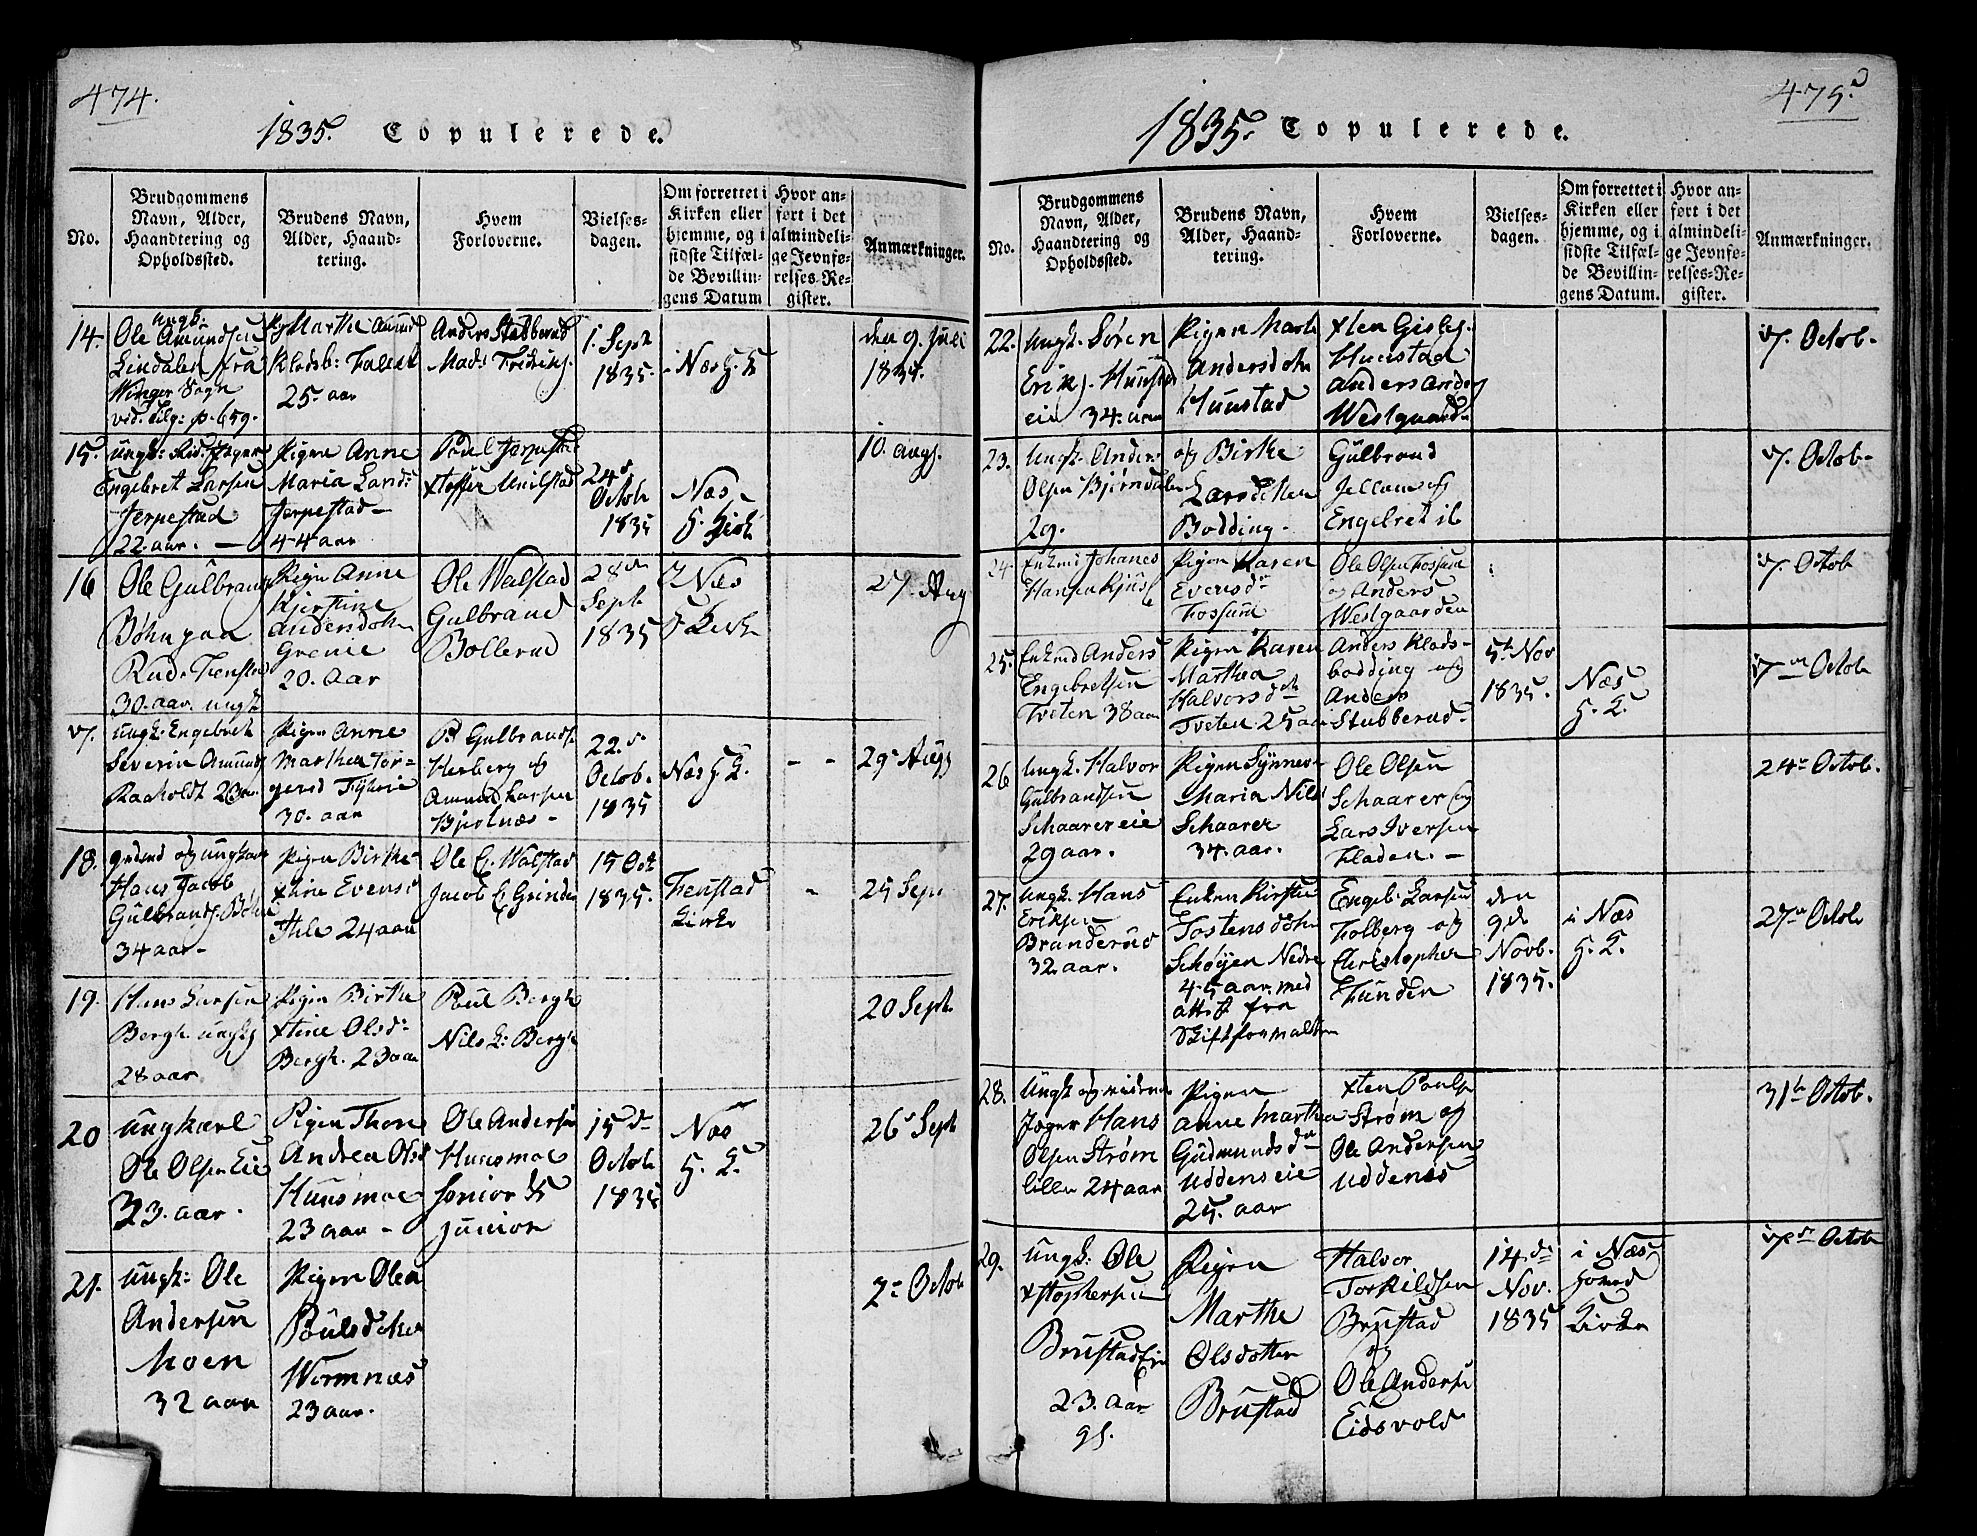 474.
1835. Copulerede.
No.
Brudgommens
Navn, Alder,
Haandtering og
Opholdssted.
Brudens Navn,
Alder, Haand-
tering.
Hvem
Forloverne.
Vielses-
dagen.
Om forrettet i
Kirken eller
hjemme, og i
sidste Tilfæl-
de Bevillin-
gens Datum
Hvor an-
ført i det
almindeli-
ge Jevnfø-
relses-Re-
gister.
Anmærkninger.
14.
Ungk:
Ole Amundsen
Lindalen fra
Winger Sogn
vid. Tilg: p. 659.
Marthe Amund
25 aar
Anders Stubberud
1. Sept
1835.
den 9. Juli
1835.
15.
Engebret Larsen
Jerpestad
22 aar. —
Pigen Anne
Maria Land:
Jerpestad —
44 aar
24
Octob
1835
Næs
10. aug.
16
Ole Gulbrands
30. aar. ungk
Pigen Anne
Kjerstine
Andersdotr
Grenie
20. Aar
Ole Walstad
Gulbrand
Bollerud
28
Sept
1835
Næs
27. Aug
17.
Ungk. Engebret
Severin Amunds
Raaholdt
Pigen Anne
Marthea Tor-
30. aar
P. Gulbrands.
Herberg og
Amund Larsen
Bjertnæs -
22.
Octob.
1835
Næs H. K.
- -
29 Aug
18.
Hans Jacob
Gulbrands.
34 aar -
Pigen Birthe
xtine Evens
Ihle 24 aar
Ole E. Walstad
15 Oct
1835.
Fenstad
Kirke
-
25 Sept
19.
Hans Larsen
Bergh. ungk
28 aar
Pigen Birthe
xtine Olsd:
Bergh. 23 aar
Poul Bergh
Nils L: Bergh
20 Sept
20
Ungkarl
Ole Olsen Eie
33. aar.
Pigen Thore
Andrea Olsd
Huusmoe
23 aar -
Ole Andersen
Huusmoe
senior &
junior
15 d
Octob
1835
Næs
H. K.
26 Sept
21.
Ungk: Ole
Andersen
Moen
32 aar
Pigen Olea
Poulsdotter
Wormnæs
23 aar.
2 Octob
475.
1835. Copulerede.
No.
Brudgommens
Navn, Alder,
Haandtering og
Opholdssted.
Brudens Navn,
Alder, Haand-
tering.
Hvem
Forloverne.
Vielses-
dagen.
Om forrettet i
Kirken eller
hjemme, og i
sidste Tilfæl-
de Bevillin-
gens Datum.
Hvor an-
ført i det
almindeli-
ge Jevnfø-
relses-Re-
gister.
Anmærkninger.
22.
Ungk. Søren
eie 34. aar
Pigen Marte
Andersdotr
Huustad
xten Gisles.
Huustad
Anders Anders
Westgaard
17. Octob.
23.
Ungk. Anders
Olsen Bjørndalen
29.
og Birthe
Larsdotter
Bodding.
Gulbrand
Engebret
17. Octob.
24.
Enkmd Johanes
Hansen
Pigen Karen
Evensd
Fossum
Ole Olsen Fossum
og Anders
Westgaarden
17. Octob
25.
Enkmd Anders
Engebretsen
Tveten 38 aar
Pigen Karen
Marthea
Halvorsd
Tveten 25 aar
Anders Klads-
bodding og
Anders
Stubberud.
5 Nov
1835.
Næs
H. K.
17 Octob
26
Ungk. Halvor
Gulbrandsen
Schaarer eie
29 aar.
Pigen Synnev
Maria Nils
Schaarer
34. aar.
Ole Olsen
Schaarer og
Lars Iversen
Fladen. —
24 Octob.
27.
Ungk. Hans
Eriksen
Branderud
32. aar.
Enken Kirstie
Tostensdotr
Schøyen Nedre
45 aar. med
attest fra
Skifteforvalteren
Engeb: Larsen
Folberg og
Christopher
Funden
den
9de
Novb.
1835.
i Næs
H. K.
27 Octob
28.
Jæger Hans
Olsen Strøm
24 aar
Pigen
Anne Marthea
Gudmundsd
Uddenseie
25. aar
xten Pouls
Strøm og
Ole Andersen
Uddenæs
31 Octob.
29.
Ungk: Ole
xstophersen
Brustad Eie
23. Aar
Pigen
Marthe
Olsdotter
Brustad
Halvor
Torkildsen
Brustad
og
Ole Anders
Eidsvold
14. d
Nov.
1835
i Næs
Hoved
Kirke
Octob